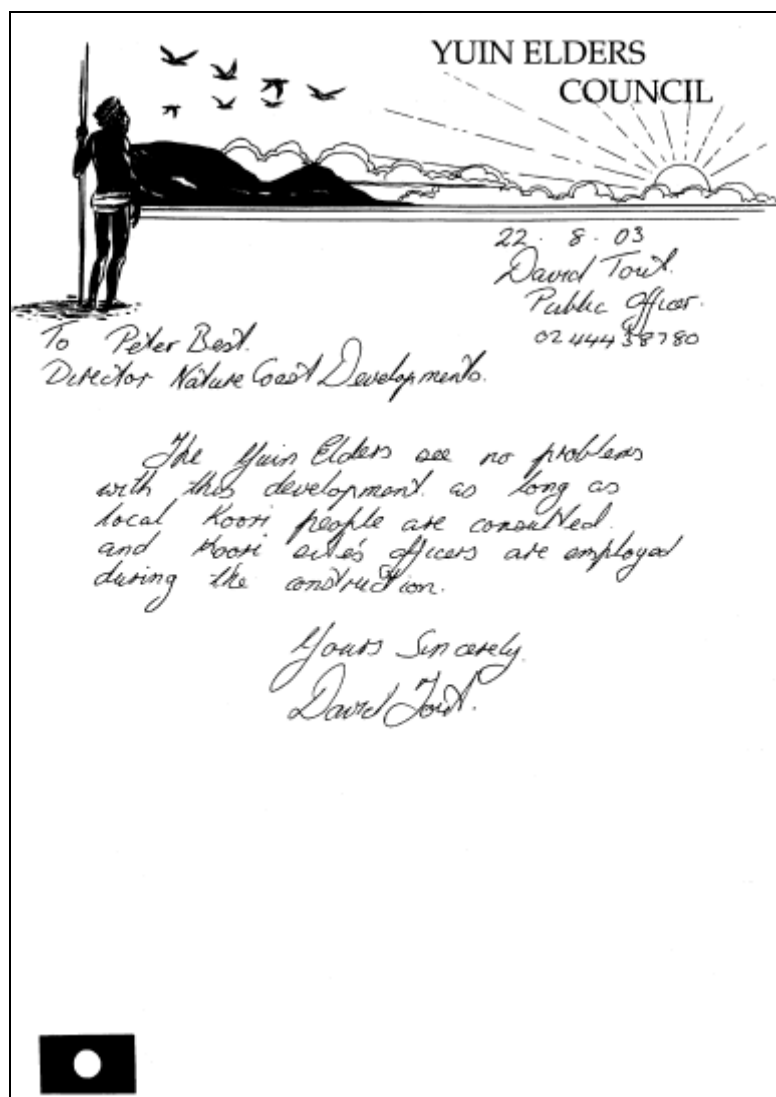 YUIN ELDERS
COUNCIL
22 . 8 . 03
David Tout.
Public Officer.
02 44438780
To Peter Best.
Director Nature Coast Developments.
The Yuin Elders see no problems
with this development. as long as
local Koori people are consulted.
and Koori site's officers are employed
during the construction.
Yours Sincerely.
David Tout.